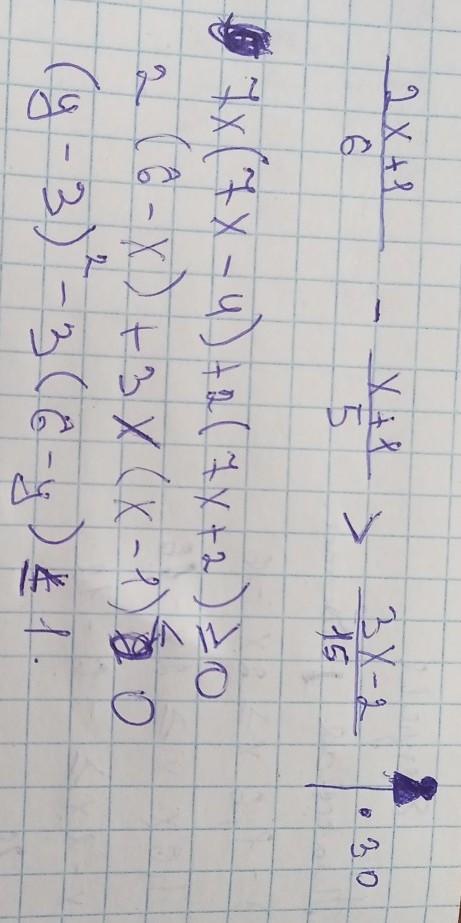 (2x+1)/6 - (x+1)/5 > (3x-2)/15 | .30
7x(7x-4)+2(7x+2)≥0
2(6-x)+3x(x-1)≤0
(y-3)²-3(6-y)≤1.